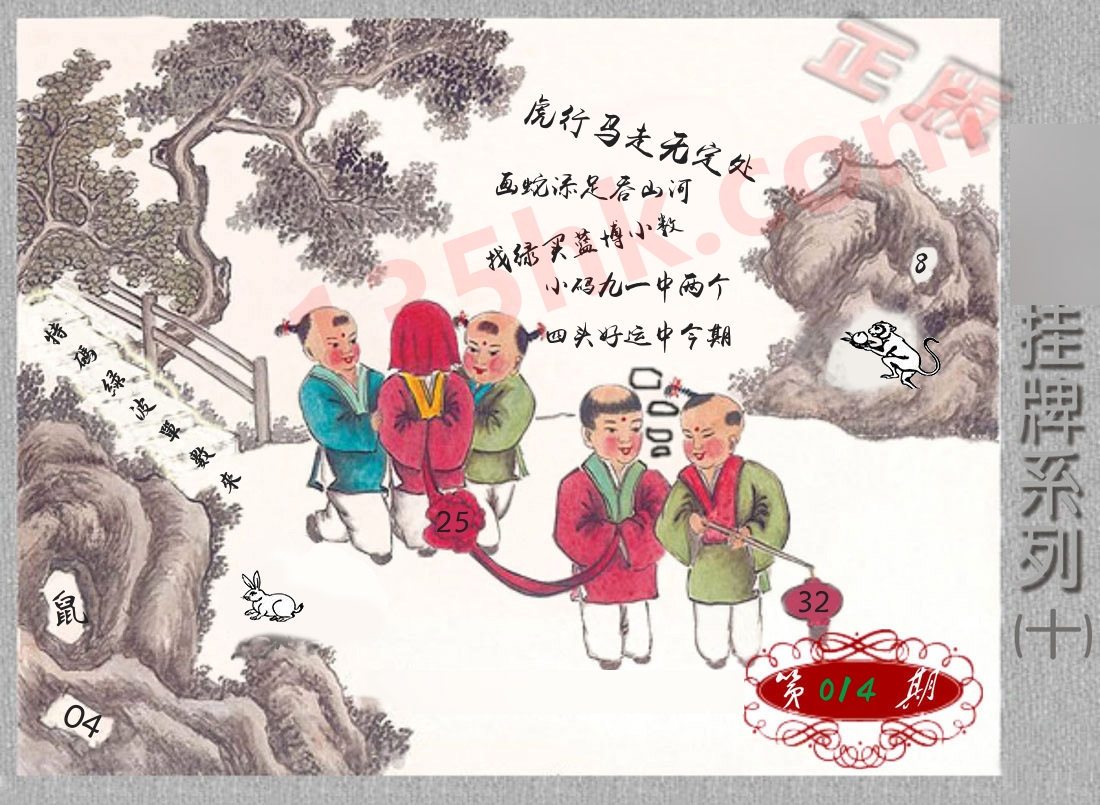 正版
虎行马走无定处
画蛇添足吞山河
找绿买蓝博小数
小码九一中两个
四头好运中今期
135hk.com
8
特碼綠波單數来
25
32
鼠
04
第014期
挂牌系列(十)